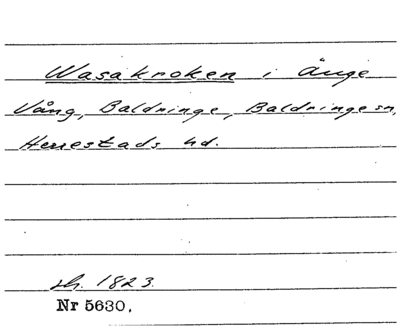 Wasakroken i Änge
Vång, Baldringe, Baldringe sn,
Herrestads hd.
sh. 1823.
Nr 5630.